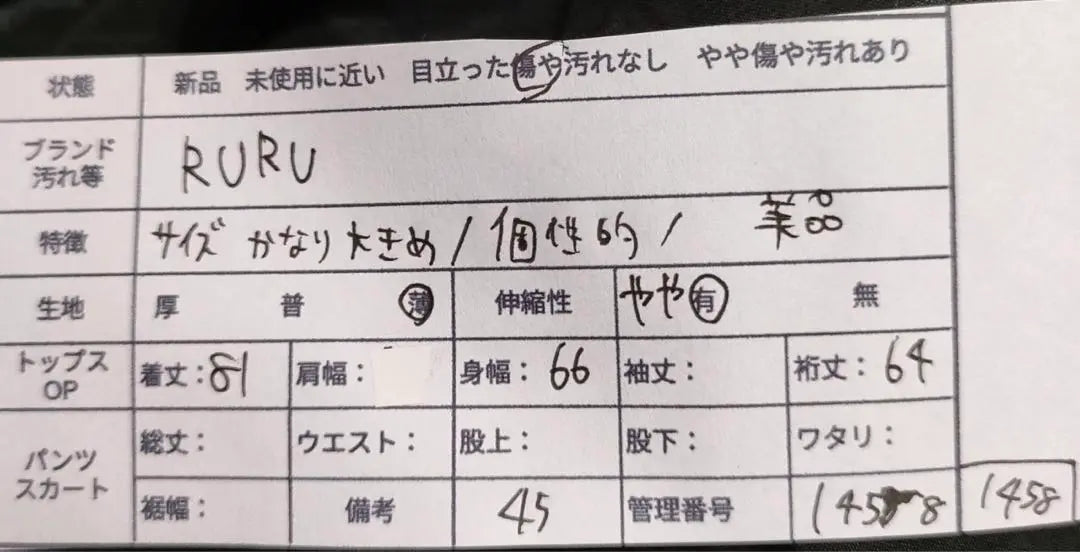 状態 新品 未使用に近い 目立った傷や汚れなし やや傷や汚れあり
ブランド
汚れ等 RURU
特徴 サイズ かなり大きめ / 個性的 / 美品
生地 厚 普 薄 伸縮性 やや有 無
トップス
OP 着丈:81 肩幅: 身幅:66 袖丈: 裄丈:64
パンツ
スカート 総丈: ウエスト: 股上: 股下: ワタリ:
裾幅: 備考 45 管理番号 1458 1458